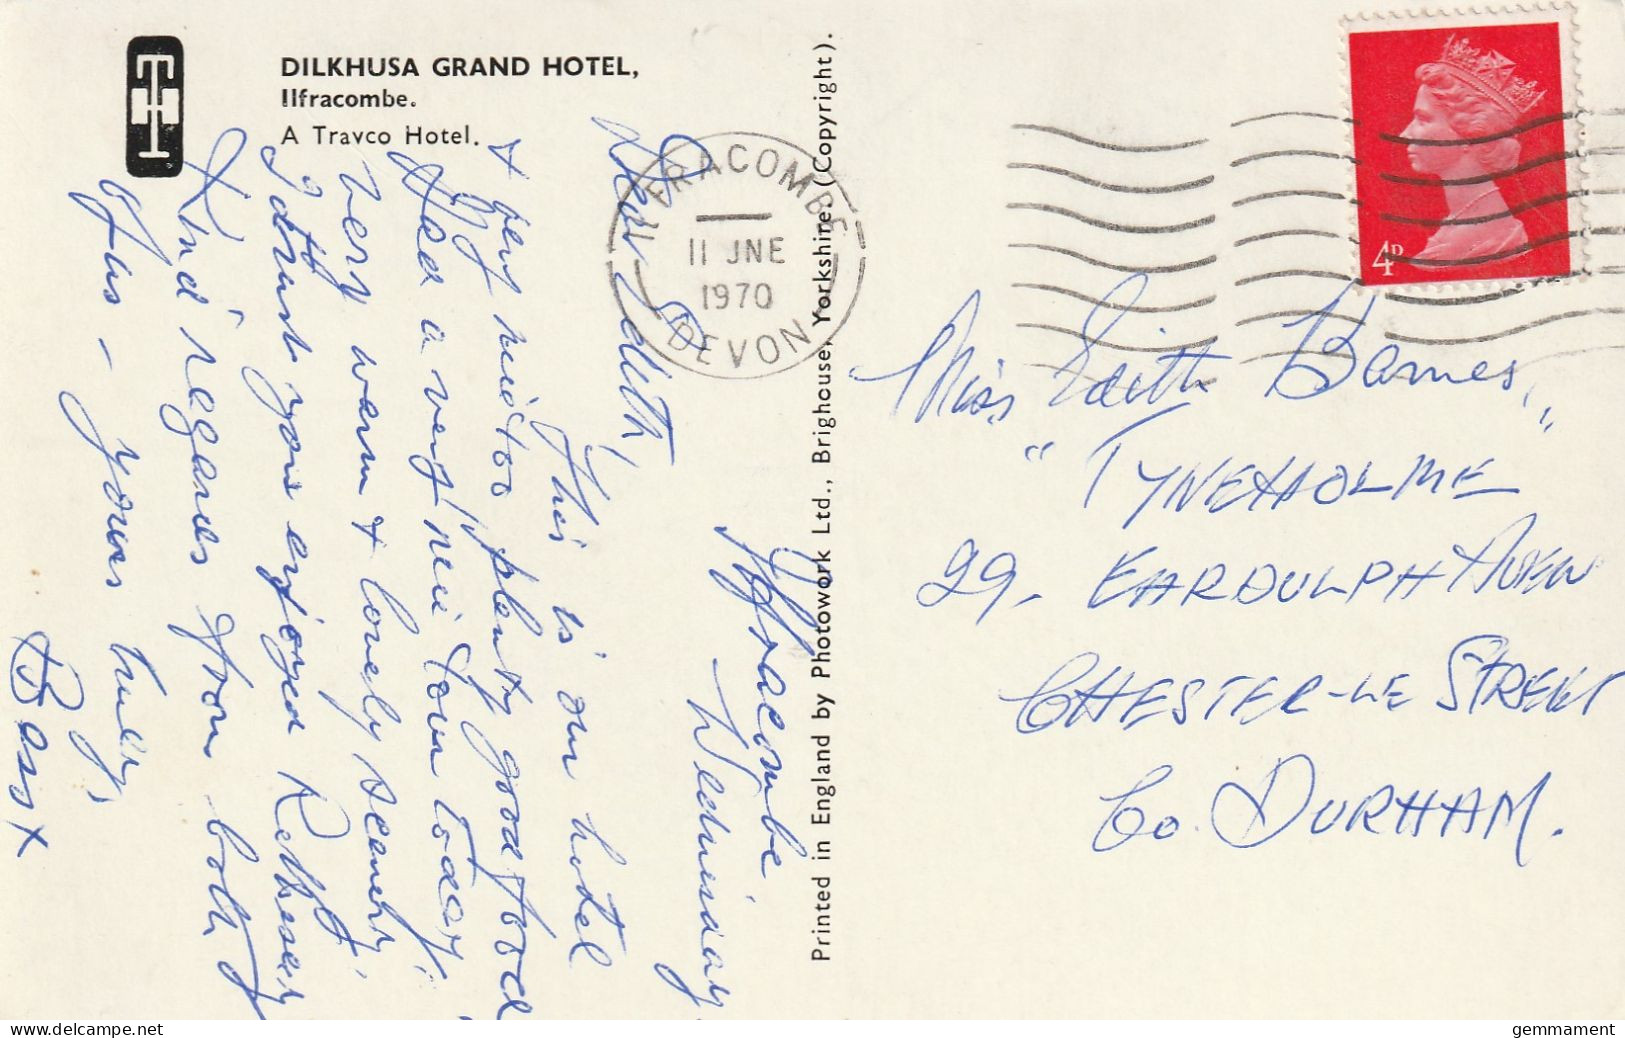 DILKHUSA GRAND HOTEL,
Ilfracombe.
A Travco Hotel.
Ilfracombe
Wednesday
Dear Edith,
This is our hotel
& very nice too, plenty good food
Had a very nice tour today.
very warm & lovely scenery,
I trust you enjoyed
Kind regards from both of
us – yours truly,
Bass x
Printed in England by Photowork Ltd., Brighouse, Yorkshire. (Copyright).
ILFRACOMBE
11 JNE
1970
DEVON
4D
Miss Edith Barnes,
"TYNEHOLME"
29, EARDULPH AVEN
CHESTER-LE STREET
Co. DURHAM.
delcampe.net
gemmament